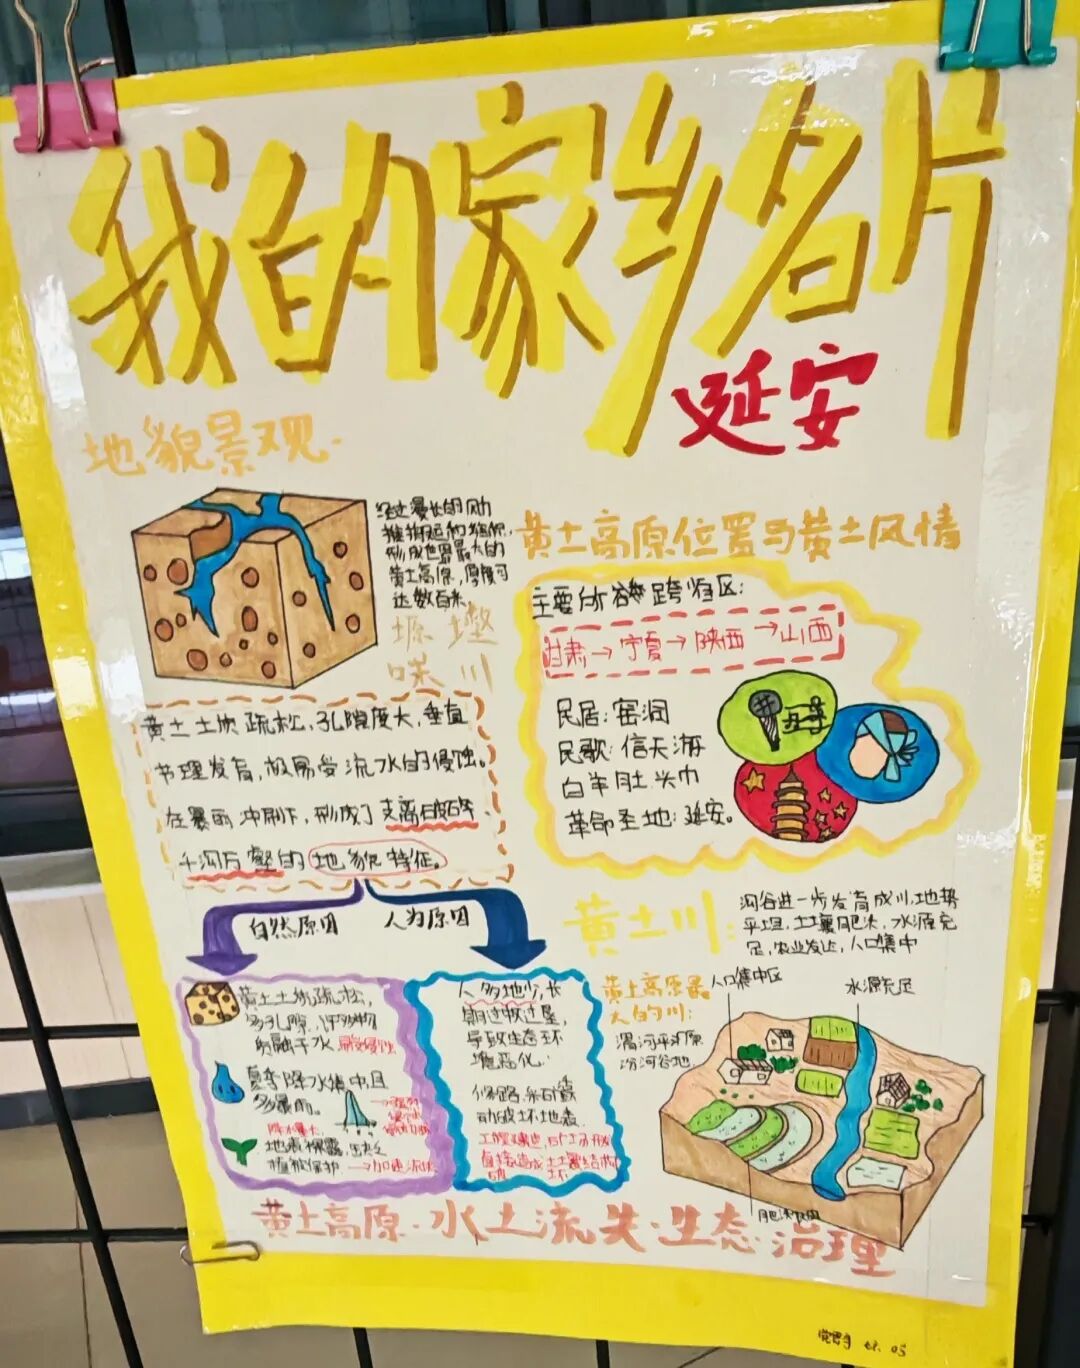 我的家乡名片
延安
地貌景观
经过漫长的风力
搬运和堆积,
形成世界最大的
黄土高原,厚度可
达数百米
塬 墚
峁 川
黄土土质疏松,孔隙度大,垂直
节理发育,极易受流水的侵蚀。
在暴雨冲刷下,形成了支离破碎、
千沟万壑的地貌特征。
自然原因
人为原因
黄土土质疏松,
多孔隙,许多物
质融于水
易受侵蚀
夏季降水集中且
多暴雨。
降水量大,
地表裸露,缺乏
植被保护
→加速流失
人多地少,长
期过牧过垦,
导致生态环
境恶化.
修路,采矿露
动破坏地表.
工程建设,矿山开发
直接造成土壤结构
破坏
黄土高原位置与黄土风情
主要分布跨省区:
甘肃→宁夏→陕西→山西
民居:窑洞
民歌:信天游
白羊肚头巾
革命圣地:延安。
黄土川:
河谷进一步发育成川,地势
平坦,土壤肥沃,水源充
足,农业发达,人口集中
黄土高原最
大的川:
渭河平原
汾河谷地
人口集中区
水源充足
黄土高原·水土流失·生态·治理
05